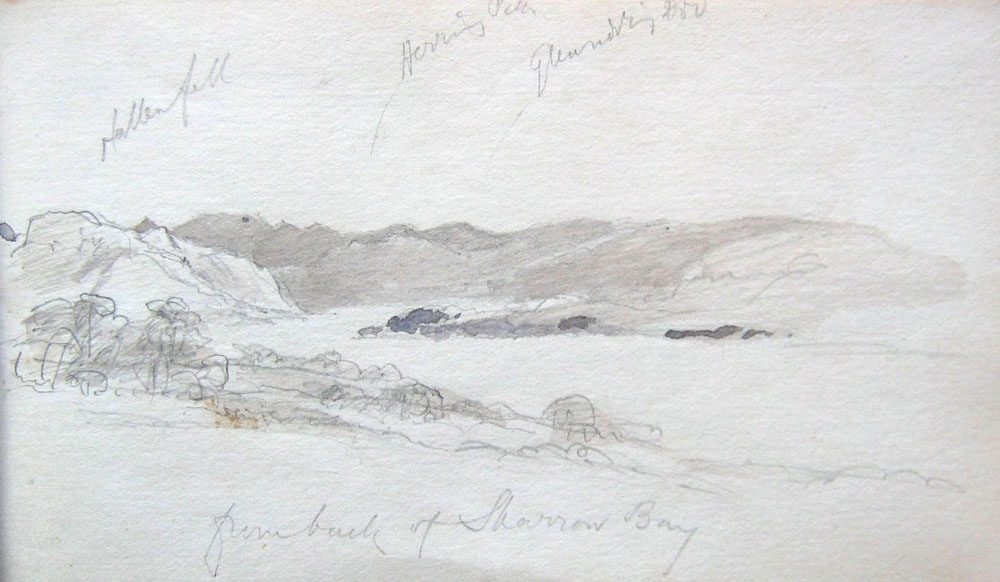 Hallen fell
Herring Pike
Glenridding Dod
from back of Sharrow Bay